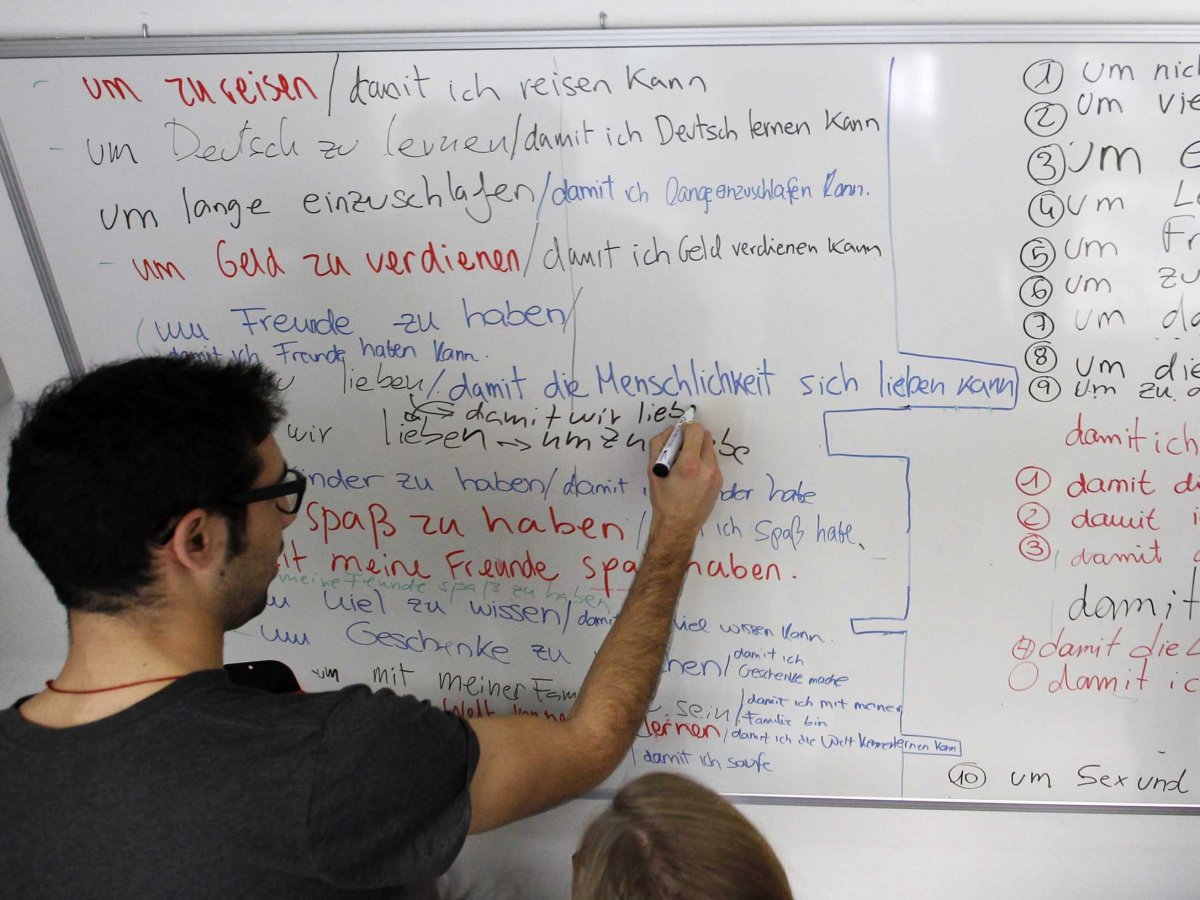 um zu reisen / damit ich reisen kann
um Deutsch zu lernen / damit ich Deutsch lernen kann
um lange einzuschlafen / damit ich lange einzuschlafen kann.
um Geld zu verdienen / damit ich Geld verdienen kann
um Freunde zu haben /
damit ich Freunde haben kann.
lieben / damit die Menschlichkeit sich lieben kann
damit wir lieb
wir lieben → um zu
inder zu haben / damit habe
spaß zu haben / ich spaß habe.
meine Freunde spa haben.
meine Freunde spaß zu haben
viel zu wissen / viel wissen kann.
um Geschenke zu chen / damit ich
Geschenke mache
um mit meiner Fam sein / damit ich mit meiner
Familie bin
Welt lernen / damit ich die Welt kennenlernen kann
damit ich saufe
① um nic
② um vie
③ um e
④ um
⑤ um Fr
⑥ um zu
⑦ um da
⑧ um die
⑨ um zu
damit ich
① damit di
② damit i
③ damit
damit
④ damit die
damit ic
⑩ um Sex und